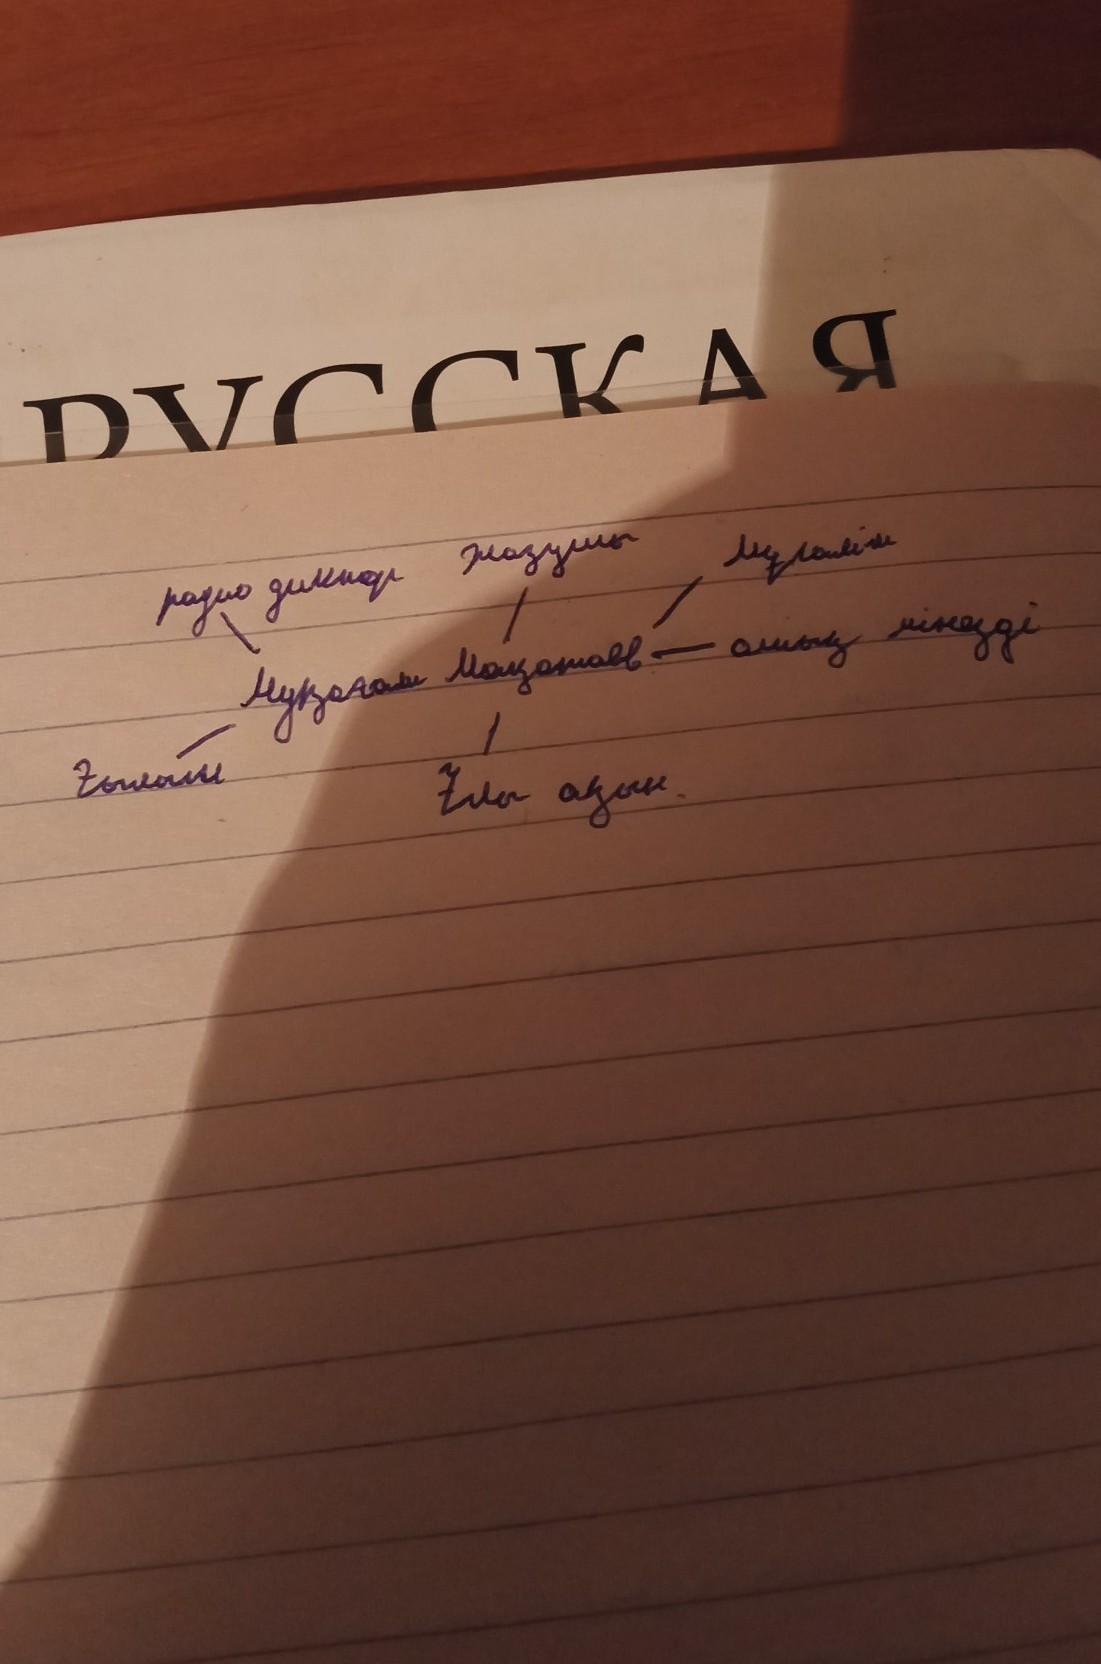 РУССКАЯ
радио диктор
Жазушы
Мұғалім
Мұқағали Мақатаев
ашық мінезді
Ғалым
Ұлы ақын.